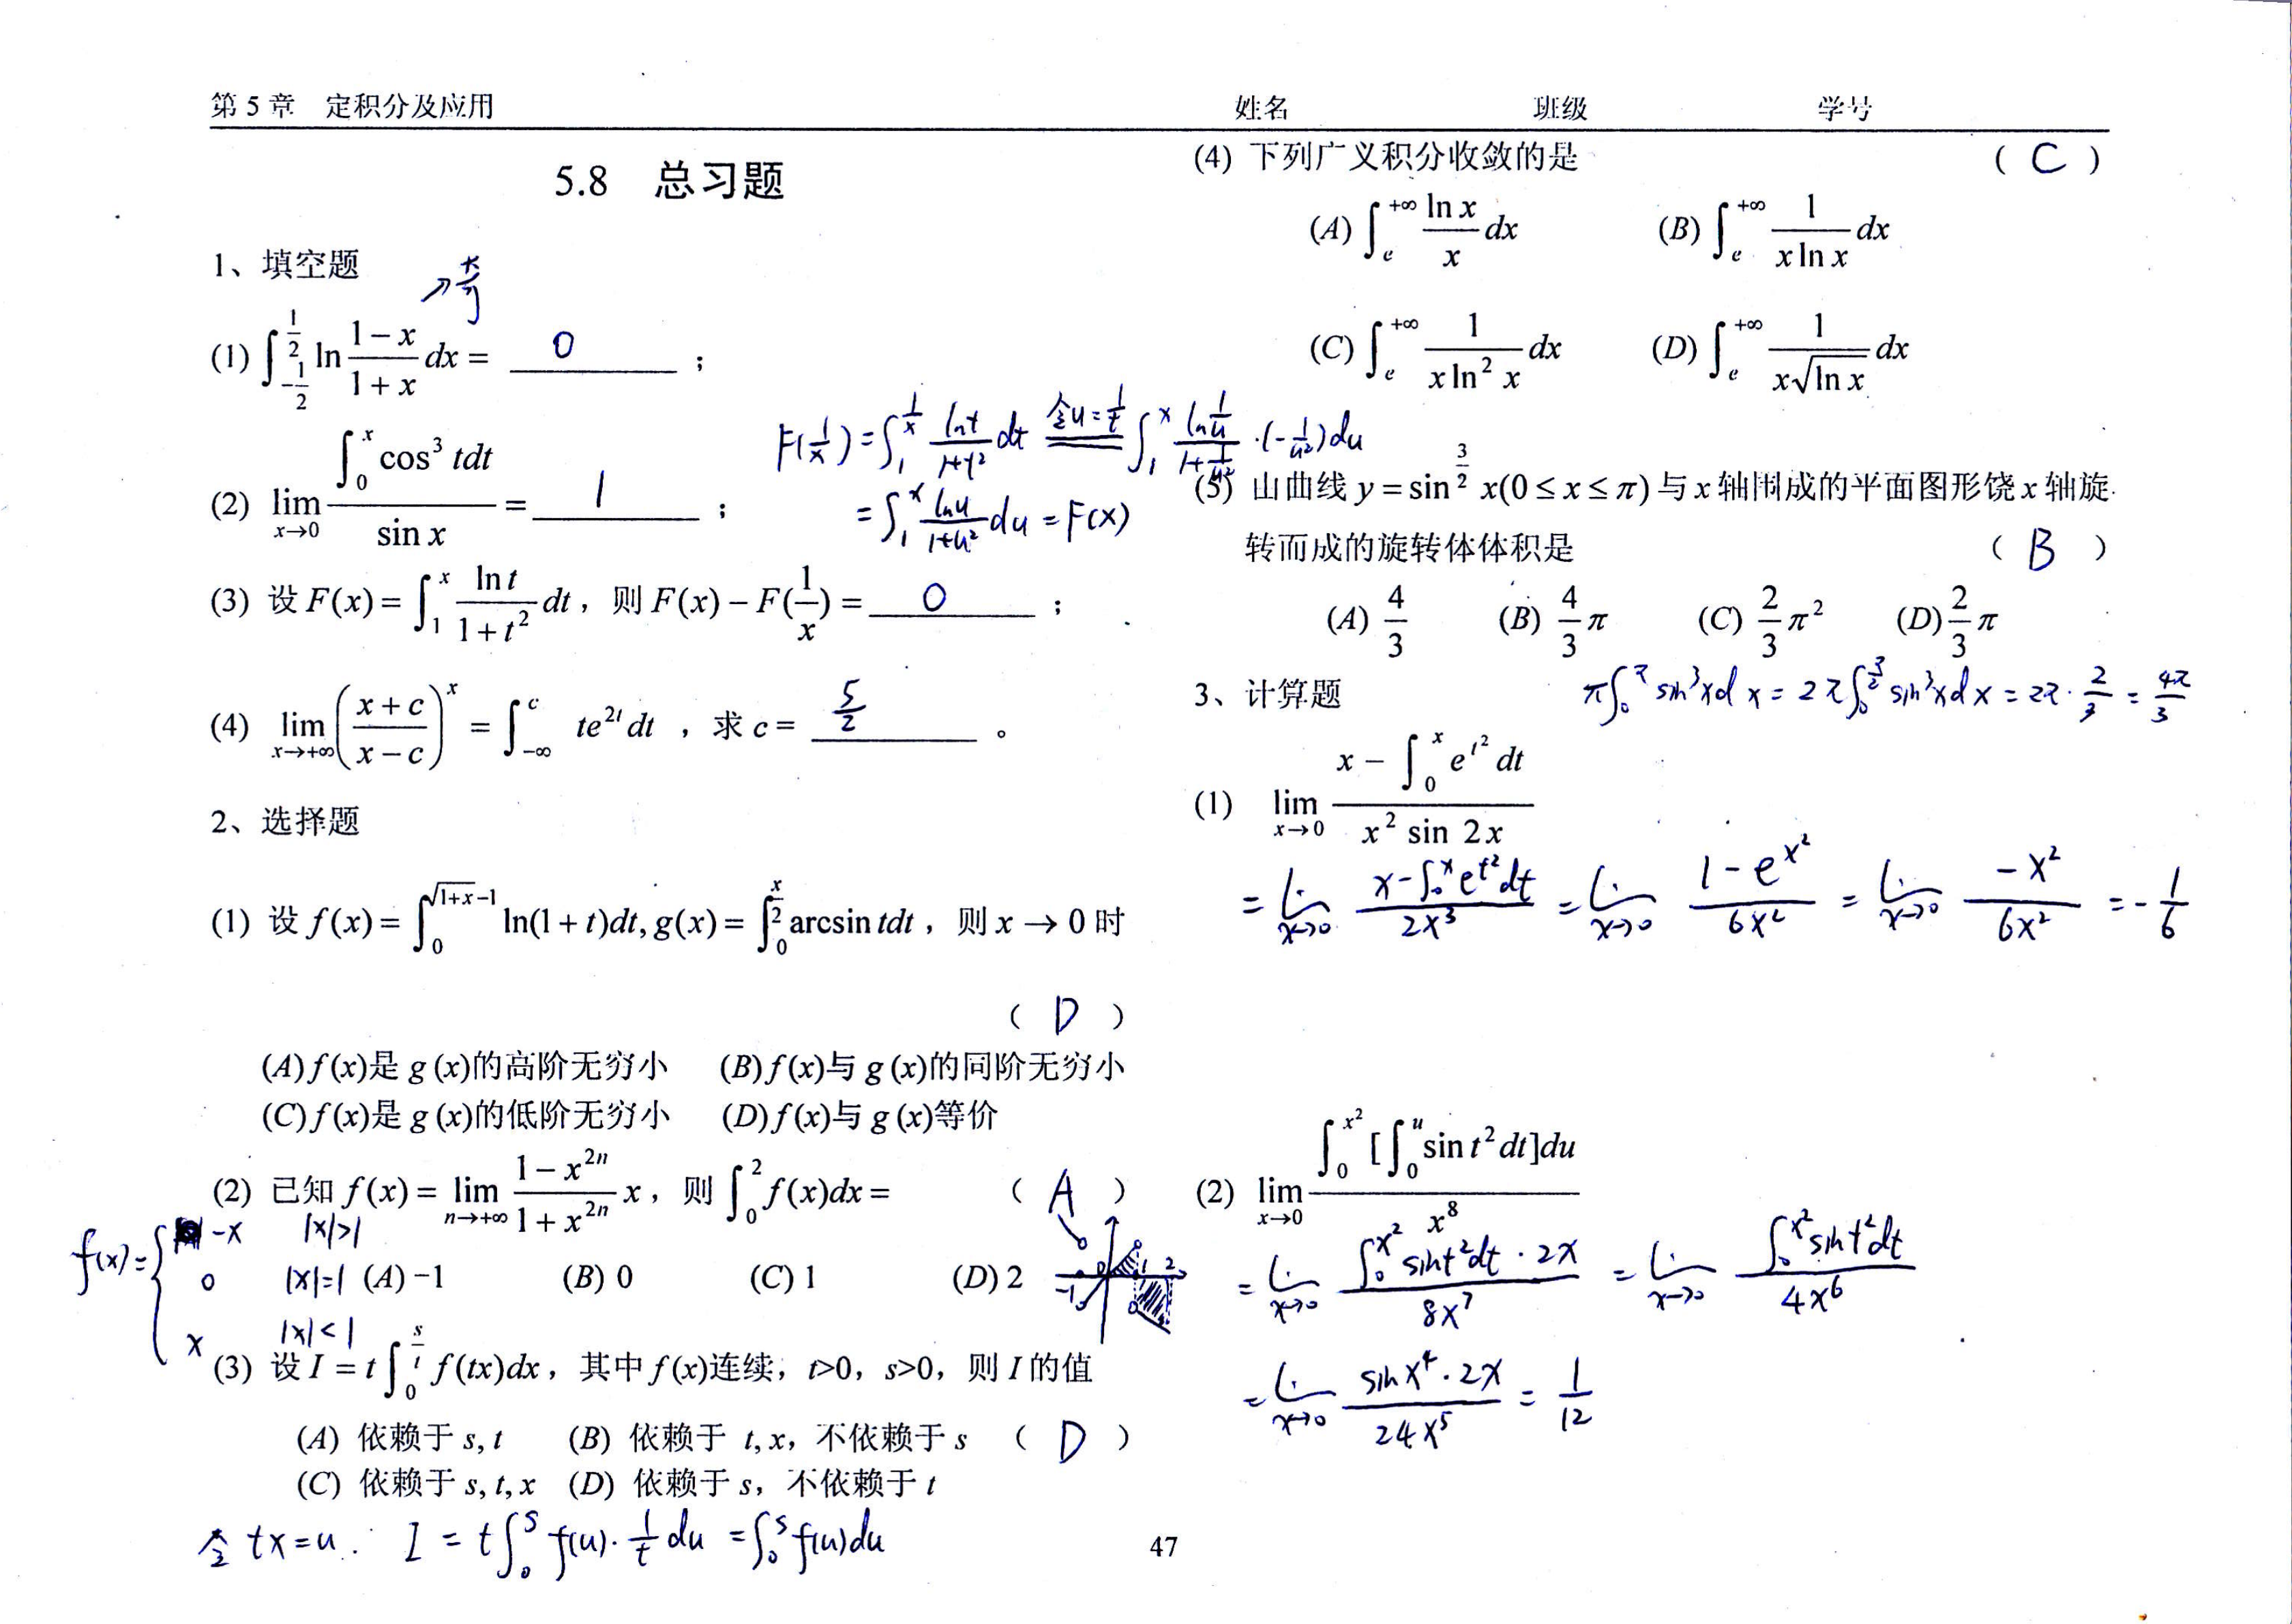 第5章 定积分及应用 姓名 班级 学号
5.8 总习题
1、填空题
↗奇
(1) ∫_{-1/2}^{1/2} ln (1-x)/(1+x) dx = 0 ;
(2) lim_{x→0} (∫_0^x cos³ tdt)/(sin x) = 1 ;
F(1/x) = ∫_1^{1/x} (ln t)/(1+t²) dt 令u=1/t ∫_1^x (ln 1/u)/(1+1/u²) ·(-1/u²)du
= ∫_1^x (ln u)/(1+u²) du = F(x)
(3) 设 F(x) = ∫_1^x (ln t)/(1+t²) dt, 则 F(x) - F(1/x) = 0 ;
(4) lim_{x→+∞} ((x+c)/(x-c))^x = ∫_{-∞}^c te^{2t} dt , 求 c = 5/2 。
2、选择题
(1) 设 f(x) = ∫_0^{√(1+x)-1} ln(1+t)dt, g(x) = ∫_0^{x/2} arcsin tdt, 则 x → 0 时
( D )
(A) f(x)是 g(x)的高阶无穷小 (B) f(x)与 g(x)的同阶无穷小
(C) f(x)是 g(x)的低阶无穷小 (D) f(x)与 g(x)等价
(2) 已知 f(x) = lim_{n→+∞} (1-x^{2n})/(1+x^{2n}) x, 则 ∫_0^2 f(x)dx = ( A )
f(x) = { -x |x|>1
0 |x|=1
x |x|<1
(A) -1 (B) 0 (C) 1 (D) 2
0 1 2
-1
(3) 设 I = t∫_0^{s/t} f(tx)dx, 其中 f(x)连续, t>0, s>0, 则 I 的值
(A) 依赖于 s, t (B) 依赖于 t, x, 不依赖于 s ( D )
(C) 依赖于 s, t, x (D) 依赖于 s, 不依赖于 t
令 tx=u. I = t∫_0^s f(u)·1/t du = ∫_0^s f(u)du
(4) 下列广义积分收敛的是 ( C )
(A) ∫_e^{+∞} (ln x)/x dx (B) ∫_e^{+∞} 1/(x ln x) dx
(C) ∫_e^{+∞} 1/(x ln² x) dx (D) ∫_e^{+∞} 1/(x√(ln x)) dx
(5) 由曲线 y = sin^{3/2} x(0 ≤ x ≤ π) 与 x 轴围成的平面图形饶 x 轴旋
转而成的旋转体体积是 ( B )
(A) 4/3 (B) 4/3 π (C) 2/3 π² (D) 2/3 π
π∫_0^π sin³xdx = 2π∫_0^{π/2} sin³xdx = 2π · 2/3 = 4π/3
3、计算题
(1) lim_{x→0} (x - ∫_0^x e^{t²} dt)/(x² sin 2x)
= lim_{x→0} (x-∫_0^x e^{t²}dt)/(2x³) = lim_{x→0} (1-e^{x²})/(6x²) = lim_{x→0} (-x²)/(6x²) = -1/6
(2) lim_{x→0} (∫_0^{x²} [∫_0^u sin t² dt]du)/(x⁸)
= lim_{x→0} (∫_0^{x²} sin t²dt · 2x)/(8x⁷) = lim_{x→0} (∫_0^{x²} sin t²dt)/(4x⁶)
= lim_{x→0} (sin x⁴ · 2x)/(24x⁵) = 1/12
47